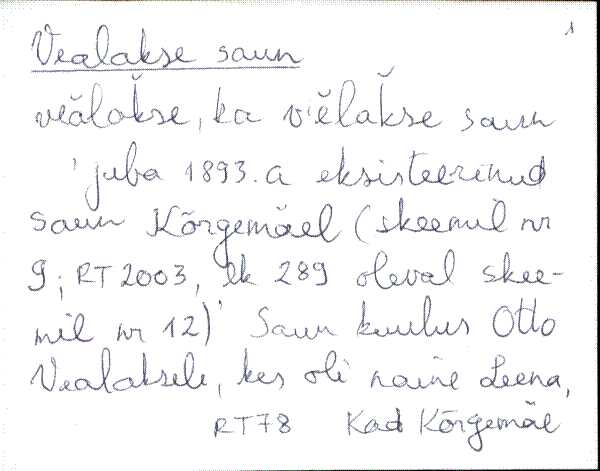 1
Vealakse saun
veălăkse, ka vĕlăkse saun
' juba 1893.a eksisteerinud
saun Kõrgemäel (skeemil nr
9; RT 2003, lk 289 oleval skee-
mil nr 12)' Saun kuulus Otto
Vealaksele, kes oli naine Leena,
RT78 Kad Kõrgemäe